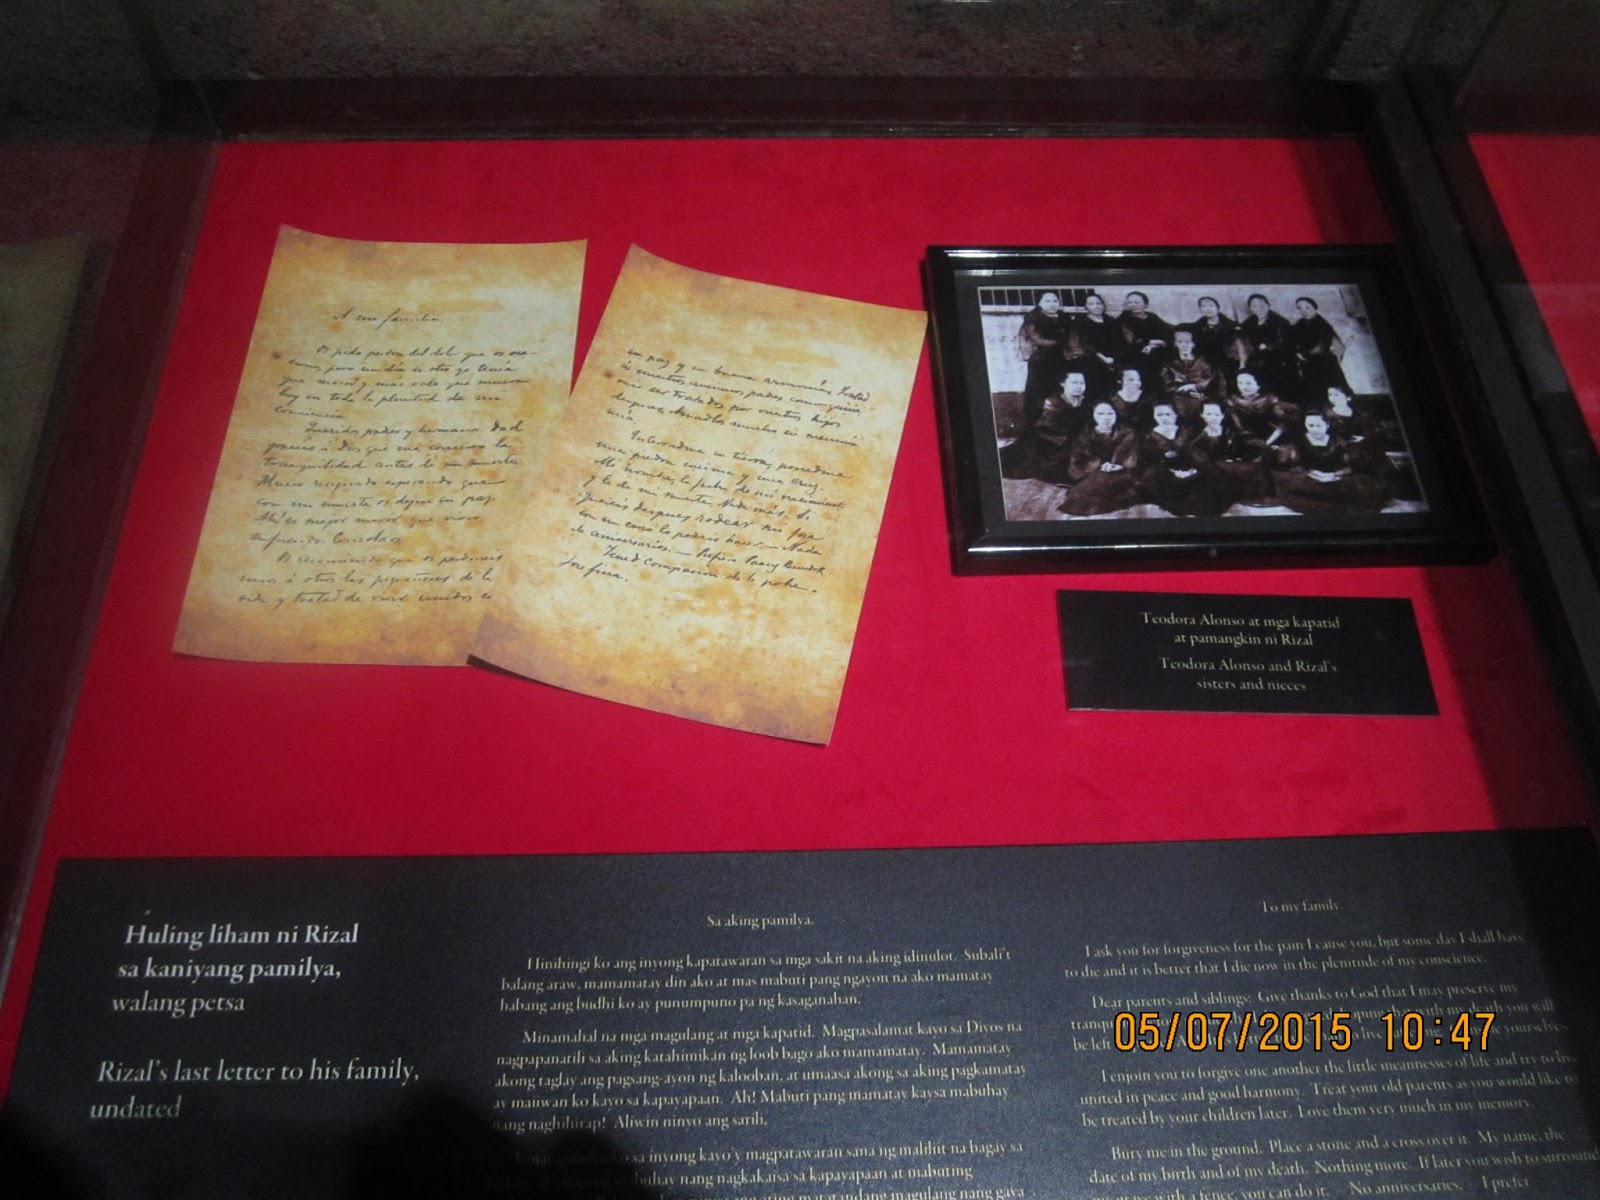 A mi familia.
Os pido perdon del dolor que os oca-
siono, pero un dia u otro yo tenia
que morir y mas vale que muera
hoy en toda la plenitud de mi
conciencia
Queridos padres y hermanos: Dad
gracias á Dios que me conserva la
tranquilidad antes de mi muerte.
Muero resignado esperando que
con mi muerte os dejen en paz.
Ah! es mejor morir que vivir
sufriendo. Consolaos
Os recomiendo que os perdoneis
unos á otros las pequeñeces de la
vida y tratad de vivir unidos en
en paz y en buena armonia. Tratad
á nuestros ancianos padres como
ser tratados por vuestros hijos
despues. Amadlos mucho en memoria
mia.
Enterradme en tierra, ponedme
una piedra encima y una cruz.
Mi nombre, la fecha de mi nacimiento
y la de mi muerte. Nada más. Si
quereis despues rodear mi fosa
con un cerco lo podreis hacer. — Nada
de aniversarios. — Prefiero Paang Bundok
Tened compasion de la pobre
Josefina.
Teodora Alonso at mga kapatid
at pamangkin ni Rizal
Teodora Alonso and Rizal's
sisters and nieces
Huling liham ni Rizal
sa kaniyang pamilya,
walang petsa
Rizal's last letter to his family,
undated
Sa aking pamilya.
Hinihingi ko ang inyong kapatawaran sa mga sakit na aking idinulot. Subali't
balang araw, mamamatay din ako at mas mabuti pang ngayon na ako mamatay
habang ang budhi ko ay punumpuno pa ng kasaganahan.
Minamahal na mga magulang at mga kapatid. Magpasalamat kayo sa Diyos na
nagpapanatili sa aking katahimikan ng loob bago ako mamamatay. Mamamatay
akong taglay ang pagsang-ayon ng kalooban, at umaasa akong sa aking pagkamatay
ay maiiwan ko kayo sa kapayapaan. Ah! Mabuti pang mamatay kaysa mabuhay
nang naghihirap! Aliwin ninyo ang sarili.
sa inyong kayo'y magpatawaran sana ng maliliit na bagay sa
buhay nang nagkakaisa sa kapayapaan at mabuting
ang ating matatandang magulang nang gaya
To my family.
I ask you for forgiveness for the pain I cause you, but some day I shall have
to die and it is better that I die now in the plenitude of my conscience.
Dear parents and siblings: Give thanks to God that I may preserve my
my death you will
be left yourselves.
I enjoin you to forgive one another the little meannesses of life and try to live
united in peace and good harmony. Treat your old parents as you would like to
be treated by your children later. Love them very much in my memory.
Bury me in the ground. Place a stone and a cross over it. My name, the
date of my birth and of my death. Nothing more. If later you wish to surround
my grave with a fence, you can do it. No anniversaries. I prefer
05/07/2015 10:47